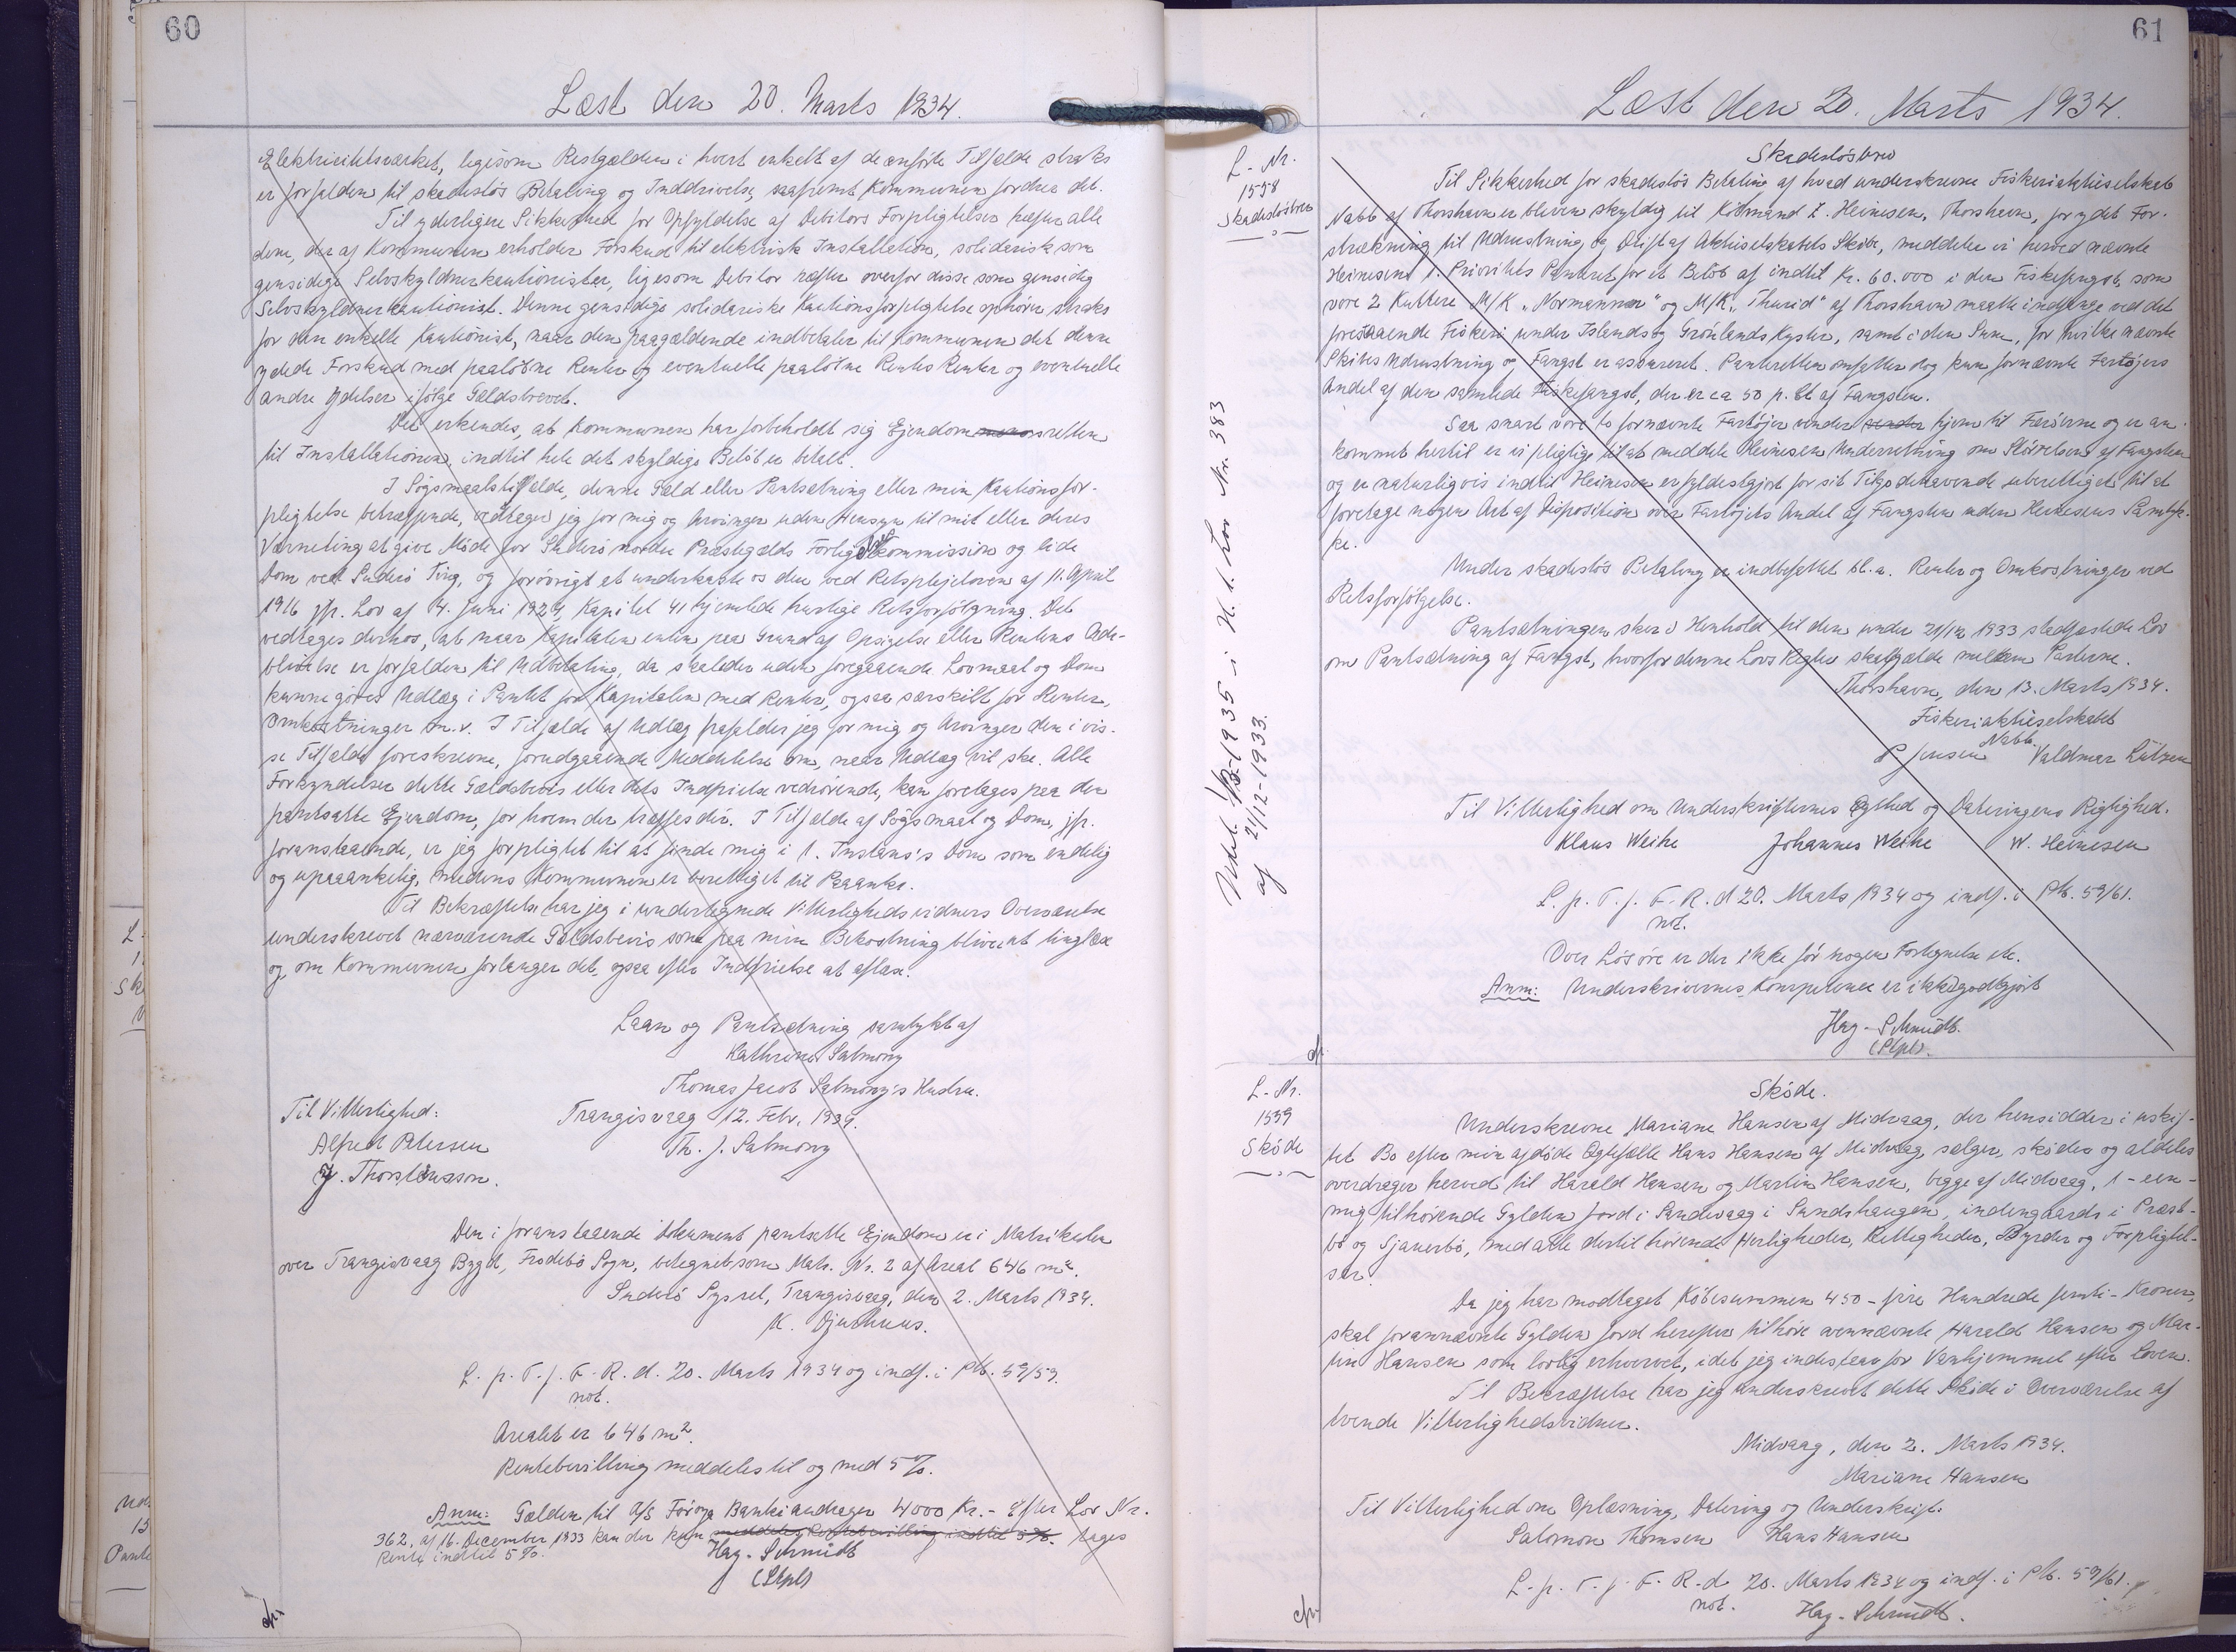 60
Læst den 20. Marts 1934.
Elektricitetsværket, ligesom Restgælden i hvert enkelt af de anførte Tilfælde straks
er forfalden til skadesløs Betaling og Inddrivelse, saafremt Kommunen fordrer det.
Til yderligere Sikkerhed for Opfyldelse af Debitors Forpligtelser hæfter alle
dem, der af Kommunen erholder Forskud til elektrisk Installation, solidarisk som
gensidige Selvskyldnerkautionister, ligesom Debitor hæfter overfor disse som gensidig
Selvskyldnerkautionist. Denne gensidige solidariske Kautionsforpligtelse ophører straks
for den enkelte Kautionist, naar den paagældende indbetaler til Kommunen det denne
ydede Forskud med paaløbne Renter og eventuelle paaløbne Renters Renter og eventuelle
andre Ydelser ifølge Gældsbrevet.
Det erkendes, at Kommunen har forbeholdt sig Ejendomsretten
til Installationen, indtil hele det skyldige Beløb er betalt.
I Søgsmaalstilfælde, denne Gæld eller Pantsætning eller min Kautionsfor-
pligtelse betræffende, vedtager jeg for mig og Arvinger uden Hensyn til mit eller deres
Værneting at give Møde for Suderø nordre Præstegælds Forligskommission og lide
Dom ved Suderø Ting, og forøvrigt at underkaste os den ved Retsplejeloven af 11. April
1916 jfr. Lov af 4. Juni 1924, Kapitel 41 hjemlede hurtige Retsforfølgning. Det
vedtages derhos, at naar Kapitalen enten paa Grund af Opsigelse eller Rentens Ude-
blivelse er forfalden til Udbetaling, da skal der uden foregaaende Lovmaal og Dom
kunne gøres Udlæg i Pantet for Kapitalen med Renter, ogsaa særskilt for Renter,
Omkostninger m.v. I Tilfælde af Udlæg frafalder jeg for mig og Arvinger den i vis-
se Tilfælde foreskrevne, forudgaaende Meddelelse om, naar Udlæg vil ske. Alle
Forkyndelser dette Gældsbrevs eller dets Indfrielse vedrørende, kan foretages paa den
pantsatte Ejendom, for hvem der træffes dér. I Tilfælde af Søgsmaal og Dom, jfr.
foranstaaende, er jeg forpligtet til at finde mig i 1. Instans's Dom som endelig
og upaaankelig, medens Kommunen er berettiget til Paaanke.
Til Bekræftelse har jeg i undertegnede Vitterlighedsvidners Overværelse
underskrevet nærværende Gældsbevis som paa min Bekostning bliver at tinglæse
og, om Kommunen forlanger det, ogsaa efter Indfrielse at aflæse.
Laan og Pantsætning samtykt af
Kathrine Salmony
Thomas Jacob Salmony's Hustru.
Til Vitterlighed: Trangisvaag 12. Febr. 1934.
Alfred Petersen Th. J. Salmony
J. Thorsteinsson.
Den i foranstaaende Dokument pantsatte Ejendom er i Matrikulen
over Trangisvaag Bygd, Frodebø Sogn, betegnet som Matr. Nr. 2 af Areal 646 m².
Suderø Syssel, Trangisvaag, den 2. Marts 1934.
K. Djurhuus.
L. p. T. f. F. R. d. 20. Marts 1934 og indf. i Ptb. 59/59.
not.
Arealet er 646 m².
Rentebevilling meddeles til og med 5 %.
Anm: Gælden til A/S Føroya Banki andrager 4000 Kr. - Efter Lov Nr.
362. af 16. December 1933 kan der kun meddeles Rentebevilling indtil 5 %. tages
Rente indtil 5 %.
Hag-Schmidt
(Stpl)
61
Læst den 20. Marts 1934.
L-Nr.
1558
Skadesløsbrev
Skadesløsbrev
Til Sikkerhed for skadesløs Betaling af hvad underskrevne Fiskeriaktieselskab
Nabb af Thorshavn er bleven skyldig til Købmand Z. Heinesen, Thorshavn, for ydet For-
strækning til Udrustning og Drift af Aktieselskabets Skibe, meddeler vi herved nævnte
Heinesen 1. Prioritets Panteret for et Beløb af indtil Kr. 60.000 i den Fiskefangst, som
vore 2 Kuttere M/K "Normanner" og M/K "Thurid" af Thorshavn maatte indtage ved det
forestaaende Fiskeri under Islands og Grønlands Kyster, samt i den Sum, for hvilke nævnte
Skibes Udrustning og Fangst er assureret. Panteretten omfatter dog kun fornævnte Fartøjers
Andel af den samlede Fiskefangst, der er ca 50 p. Ct af Fangsten.
Saa snart vore to fornævnte Fartøjer vender vender hjem til Færøerne og er an-
kommet hertil er vi pligtige til at meddele Heinesen Underretning om Størrelsen af Fangsten
og er naturligvis indtil Heinesen er fyldestgjort for sit Tilgodehavende uberettiget til at
foretage nogen Art af Disposition over Fartøjets Andel af Fangsten uden Heinesens Samtyk-
ke.
Under skadesløs Betaling er indbefattet bl.a. Renter og Omkostninger ved
Retsforfølgelse.
Pantsætningen sker i Henhold til den under 21/12 1933 stadfæstede Lov
om Pantsætning af Fangst, hvorfor denne Lovs Regler skal gælde mellem Parterne.
Thorshavn, den 13. Marts 1934.
Fiskeriaktieselskabet
Nabb.
P Jensen Valdmar Lützen
Til Vitterlighed om Underskrifternes Ægthed og Dateringens Rigtighed.
Klaus Weihe Johannes Weihe W. Heinesen
L. p. T. f. F. R. d 20. Marts 1934 og indf. i Ptb. 59/61.
not.
Over Løsøre er der ikke før nogen Fortegnelse etc.
Anm: Underskrivernes Kompetence er ikke godtgjort
Hag-Schmidt.
(Stpl).
Nr. 383
af 21/12-1933.
L-Nr.
1559
Skøde
Skøde.
Underskrevne Mariane Hansen af Midvaag, der hensidder i uskif-
tet Bo efter min afdøde Ægtefælle Hans Hansen af Midvaag, sælger, skøder og aldeles
overdrager herved til Harald Hansen og Martin Hansen, begge af Midvaag, 1 - een -
mig tilhørende Gylden Jord i Sandevaag i Sundshaugen, indengaards i Præst-
bø og Sjanerbø, med alle dertil hørende Herligheder, Rettigheder, Byrder og Forpligtel-
ser.
Da jeg har modtaget Købesummen 450 - fire Hundrede femti - Kroner,
skal forannævnte Gylden Jord herefter tilhøre ovennævnte Harald Hansen og Mar-
tin Hansen som lovlig erhvervet, idet jeg indestaar for Vanhjemmel efter Loven.
Til Bekræftelse har jeg underskrevet dette Skøde i Overværelse af
tvende Vitterlighedsvidner.
Midvaag, den 2. Marts 1934.
Mariane Hansen
Til Vitterlighed om Oplæsning, Datering og Underskrift.
Salomon Thomsen Hans Hansen
L. p. T. f. F. R. d. 20. Marts 1934 og indf. i Ptb. 59/61.
not. Hag-Schmidt.